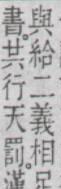 與給二義相足
書共行天罰漢